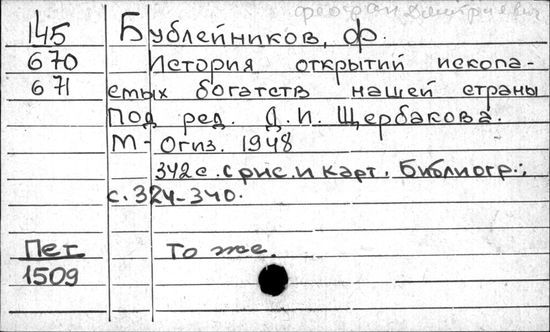 феофан Дмитриевич
145 Бублейников, Ф.
670 История открытий ископа-
671 емых богатств нашей страны
Под ред. Д. И. Щербакова.
М- Огиз. 1948
342 с. с рис. и карт. Библиогр.:
с. 324-340.
Пет То же.
1509